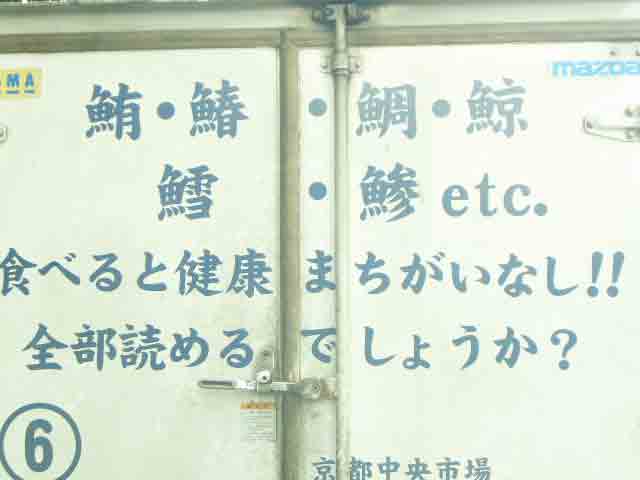 MA
mazda
鮪・鰆・鯛・鯨
鱈・鯵 etc.
食べると健康まちがいなし!!
全部読めるでしょうか？
6
京都中央市場